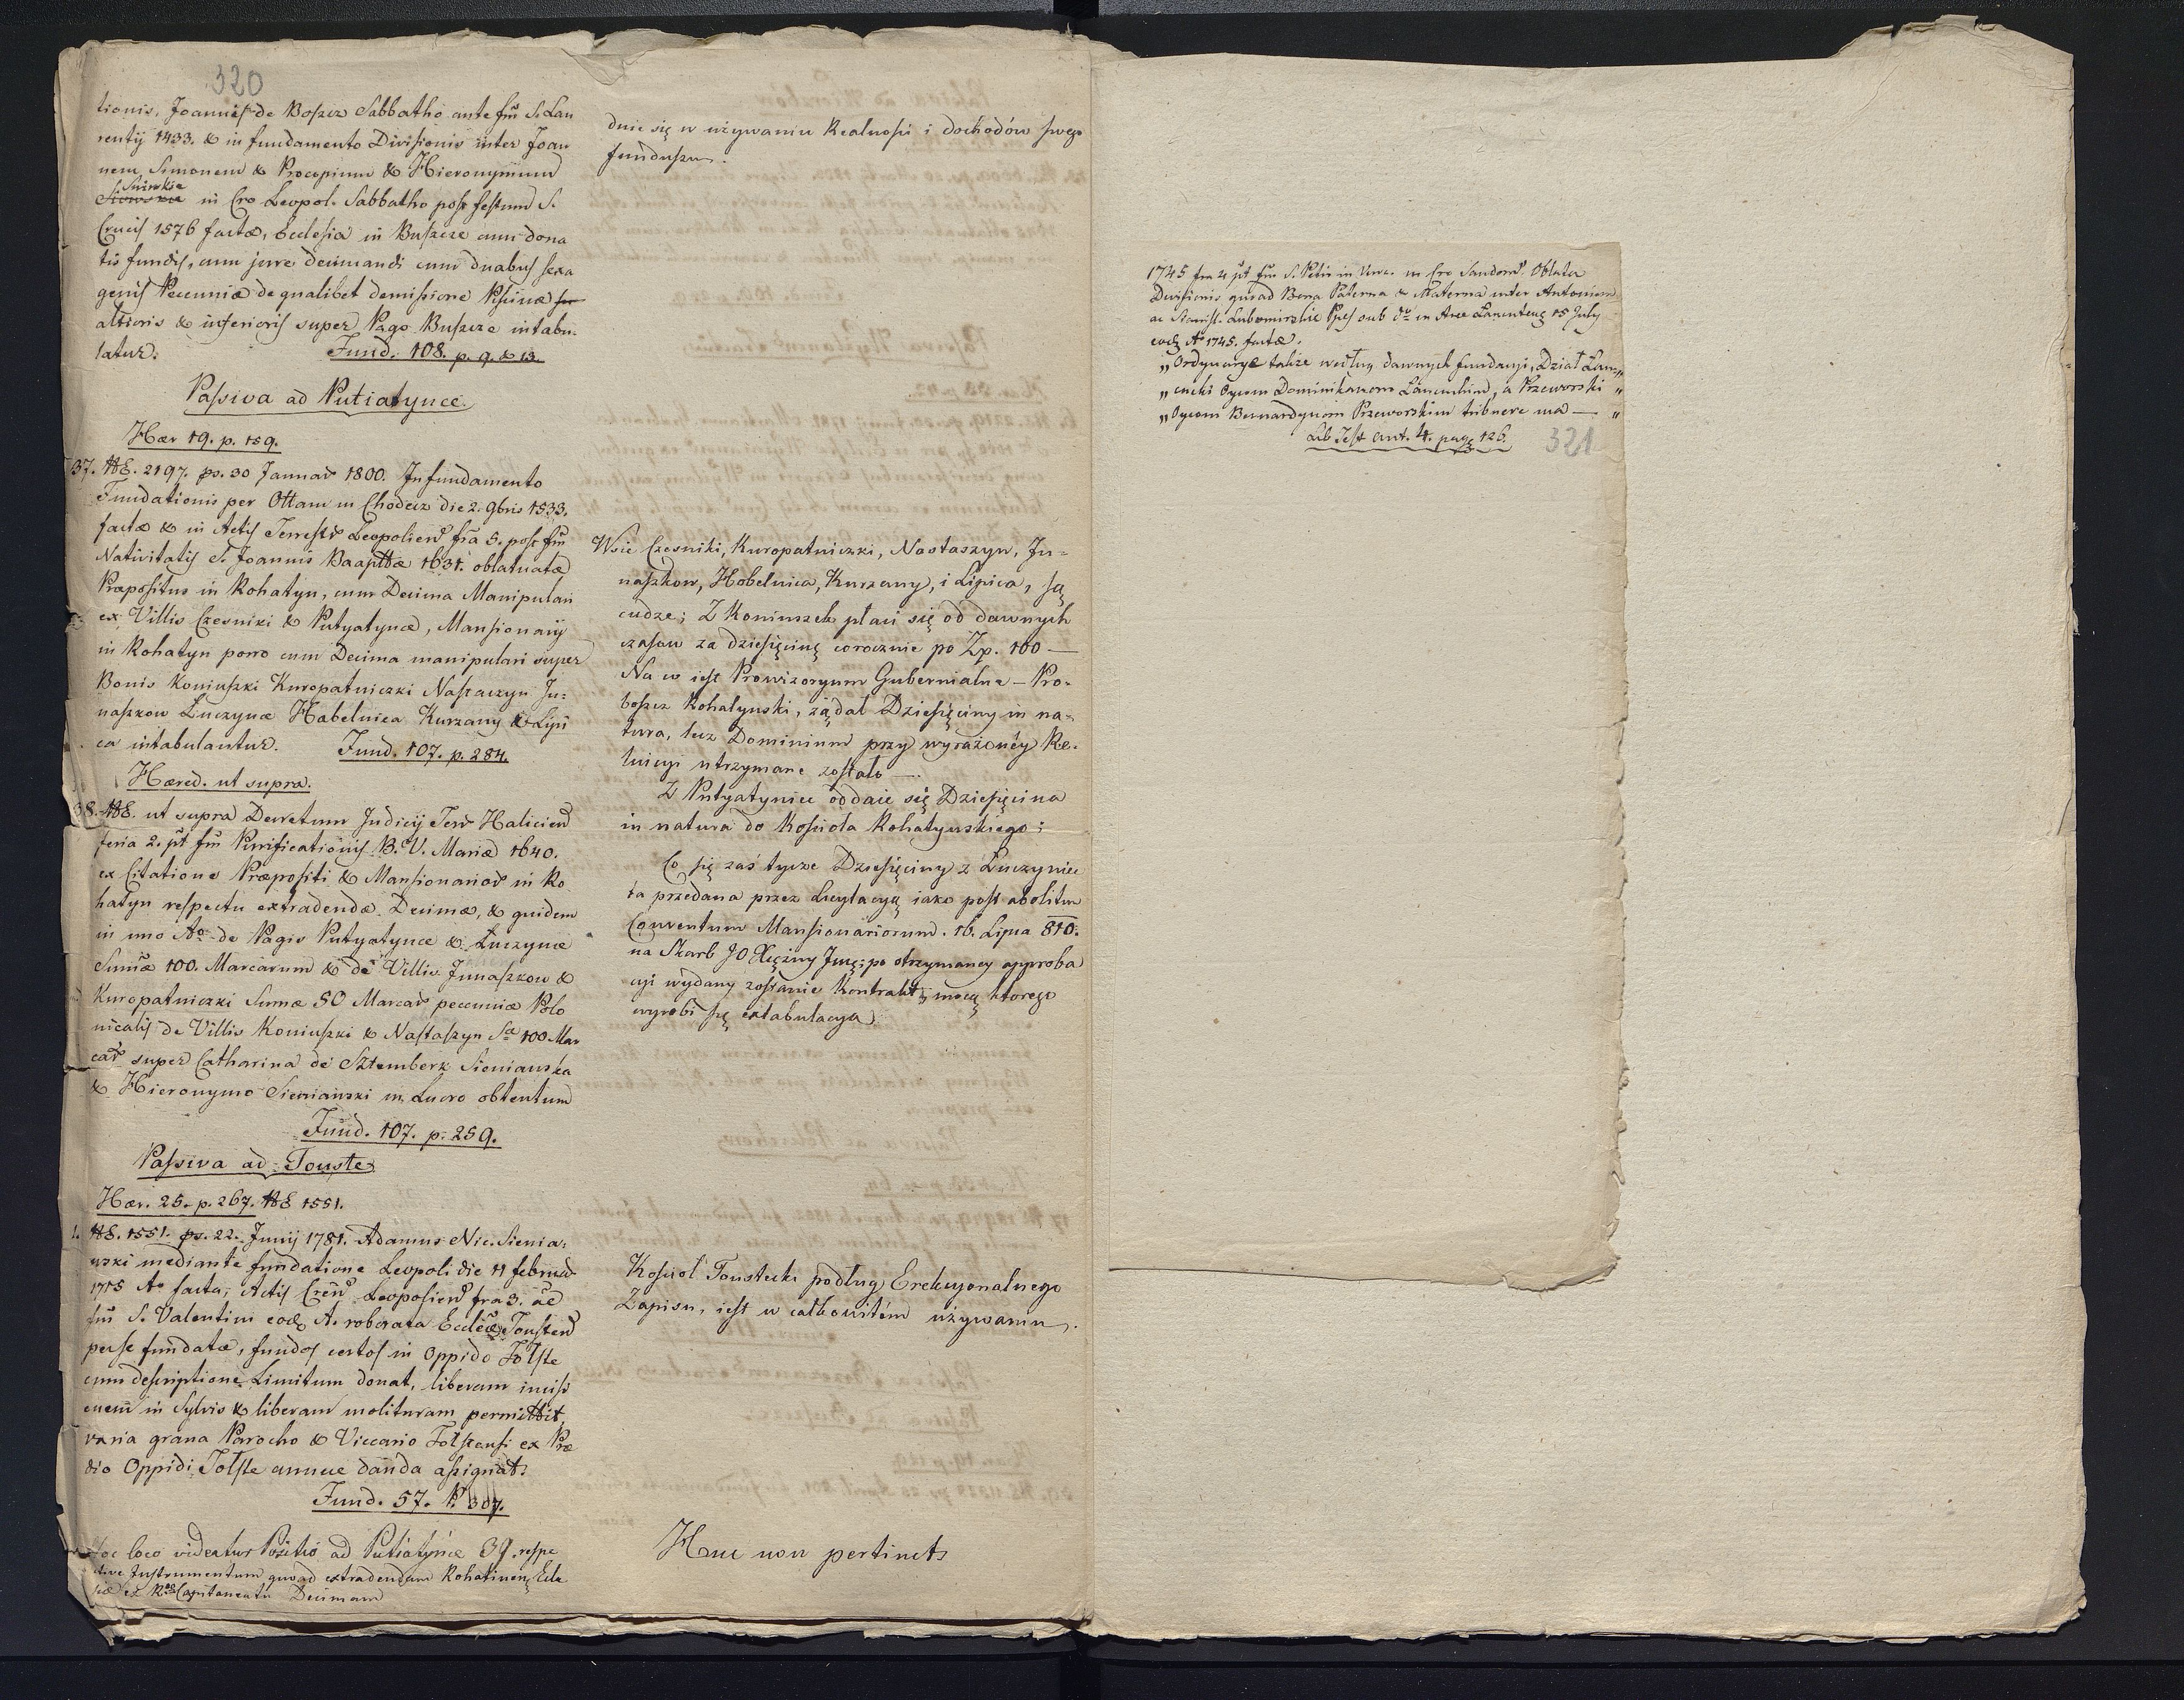 320
tionis, Joannis de Boszcz Sabbatho ante fm̃ S. Lau
rentij 1433. & in fundamento Divisionis inter Joan
nem, Simonem & Procopium & Hieronymum
Sninskie
in Cro Leopol. Sabbatho post festum S.
Crucis 1576 factæ, Ecclesia in Buszcze cum dona
tis fundis, cum jure decimandi cum duabus sexa
genis Pecuniæ de qualibet demissione Piscinæ
altioris & inferioris super Pago Buszcze intabu-
latur.
Fund. 108. p. 9. & 13.
Passiva ad Putiatynce.
Hær 19. p. 159.
37. NE. 2197. ps. 30 Januar 1800. In fundamento
Fundationis per Ottam in Chodecz die 2. 9bris 1533.
factæ & in Actis Terrestr Leopolien fria 5. post fm̃
Nativitatis S. Joannis Baapttæ 1631. oblatuatæ
Præpositus in Rohatyn, cum Decima Manipulari
ex Villis Czesniki & Putyatynce, Mansionarij
in Rohatyn porro cum Decima manipulari super
Bonis Koniuszki Kuropatniczki Nastaczyn Ju=
naszkow Luczynce Habelnica Kurzany & Lipi
ca intabulantur.
Fund. 107. p. 284.
Hæred. ut supra.
38. NE. ut supra Decretum Judicij Terr Halicien
feria 2. pt fm̃ Purificationis B. V. Mariæ 1640.
ex Citatione Præpositi & Mansionarior in Ro
hatyn respectu extradendæ Decimæ, & quidem
in uno Ao de Pagis Putyatynce & Luczynce
Summæ 100. Marcarum & de Villis Junaszkow &
Kuropatniczki Summæ 50 Marcar pecuniæ Polo
nicalis de Villis Koniuszki & Nastaszyn Sæ 100 Mar
car super Catharina de Sztemberk Sieniawska
& Hieronymo Sieniawski in Lucro obtentum
Fund. 107. p. 259.
Passiva ad Touste
Hær. 25. p. 267. NE 1551.
1. NE. 1551. ps. 22. Junij 1781. Adamus Nic. Sienia,
wski mediante fundatione Leopoli die 11 februar
1715 Ao facta, Actis Leopolien fra 3. ad
fm̃ S. Valentini eod A. roborata Ecclæ Tousten
per se fundatæ, fundos certos in Oppido Tolste
cum descriptione Limitum donat, liberam incisi
onem in Sylvis & liberam molituram permittit,
varia grana Parocho & Viccario Tolstensi ex Præ
dio Oppidi Tolste annue danda assignat.
Fund. 57. P. 307.
Hoc loco videatur Positio ad Putiatynce 39. respe
ctive Instrumentum quoad extradendam Rohatinens Ecle
siæ ex Capitaneatu Decimam
dnie się w używaniu Realności i dochodów swego
funduszu.
Wsie Czesniki, Kuropatniczki, Nastaszyn, Ju=
naszkow, Hobelnica, Kurzany, i Lipica, są
cudze; Z Koniuszek płaci się od dawnych
czasow za dziesięcinę corocznie po Zp. 100 —
Na co iest Prowizoryum Gubernialne — Pro-
boszcz Rohatynski, żądał Dziesięciny in na-
tura, lecz Dominium przy wyrażoney Re-
luicyi utrzymane zostało —.
Z Putyatyniec oddaie się Dziesięcina
in natura do Kościoła Rohatynskiego;
Co się zaś tycze Dziesięciny z Luczyniec
ta przedana przez Licytacyą iako post abolitum
Conventum Mansionariorum. 16. Lipca 810.
na Skarb JO Xięzny Jmę; po otrzymaney approba
cyi wydany zostanie Kontrakt; mocą ktorego
wyrobi się extabulacya.
Kosciol Toustecki podług Erekcyonalnego
Zapisu, iest w całkowitém używaniu.
Huc non pertinet
1745 fra 4 pt fm̃ S. Petri in Vinc. in Cro Sandom. Oblata
Divisionis quoad Bona Paterna & Materna inter Antonium
ac Stanisl. Lubomirskie Ppes sub do in Arce Lancuteng 15 July
eod Ao 1745. factæ.
„Ordynaryę także według dawnych fundacyi, Dział Łan„
„cucki Oycom Dominikanom Łancuckim, a Przeworski „
„Oycom Bernardynom Przeworskim tribuere ma — „
Lib Test ant. 4. pag 126.
321